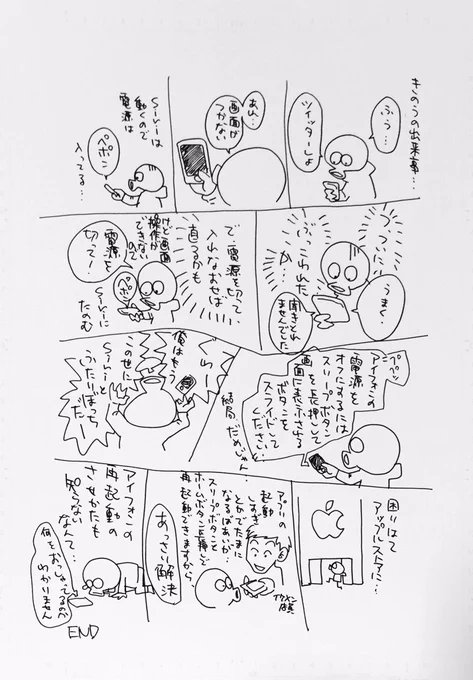 きのうの出来事…
ふう…
ツイッターしよ
あれ…
画面が
つかない
Siriは
動くので
電源は
入ってる…
ペポン
ついに…
ぶ…こわれた
か…
うまく…
聞きとれ
ませんでした
で、電源を切って、
入れなおせば
直るかも
けど画面
操作が
できない
ので
Siriに
たのむ
ペポ
電源を
切って！
アイフォンの
電源を
オフにするには
スリープボタン
を長押しして
画面に表示される
ボタンを
スライドして
ください
結局だめじゃん…
くわー
俺はもう
この世に
Siriと
ふたりぼっち
だー
困りはてて
アップルストアに…
アプリの
起動
しすぎ
とかでたまに
なるばあいが…
スリープボタンと
ホームボタン長押しで
再起動できますから
イケメン
店員
あっさり解決
アイフォンの
再起動の
させかたも
知らない
なんて…
何をおっしゃってるのか
わかりません
END